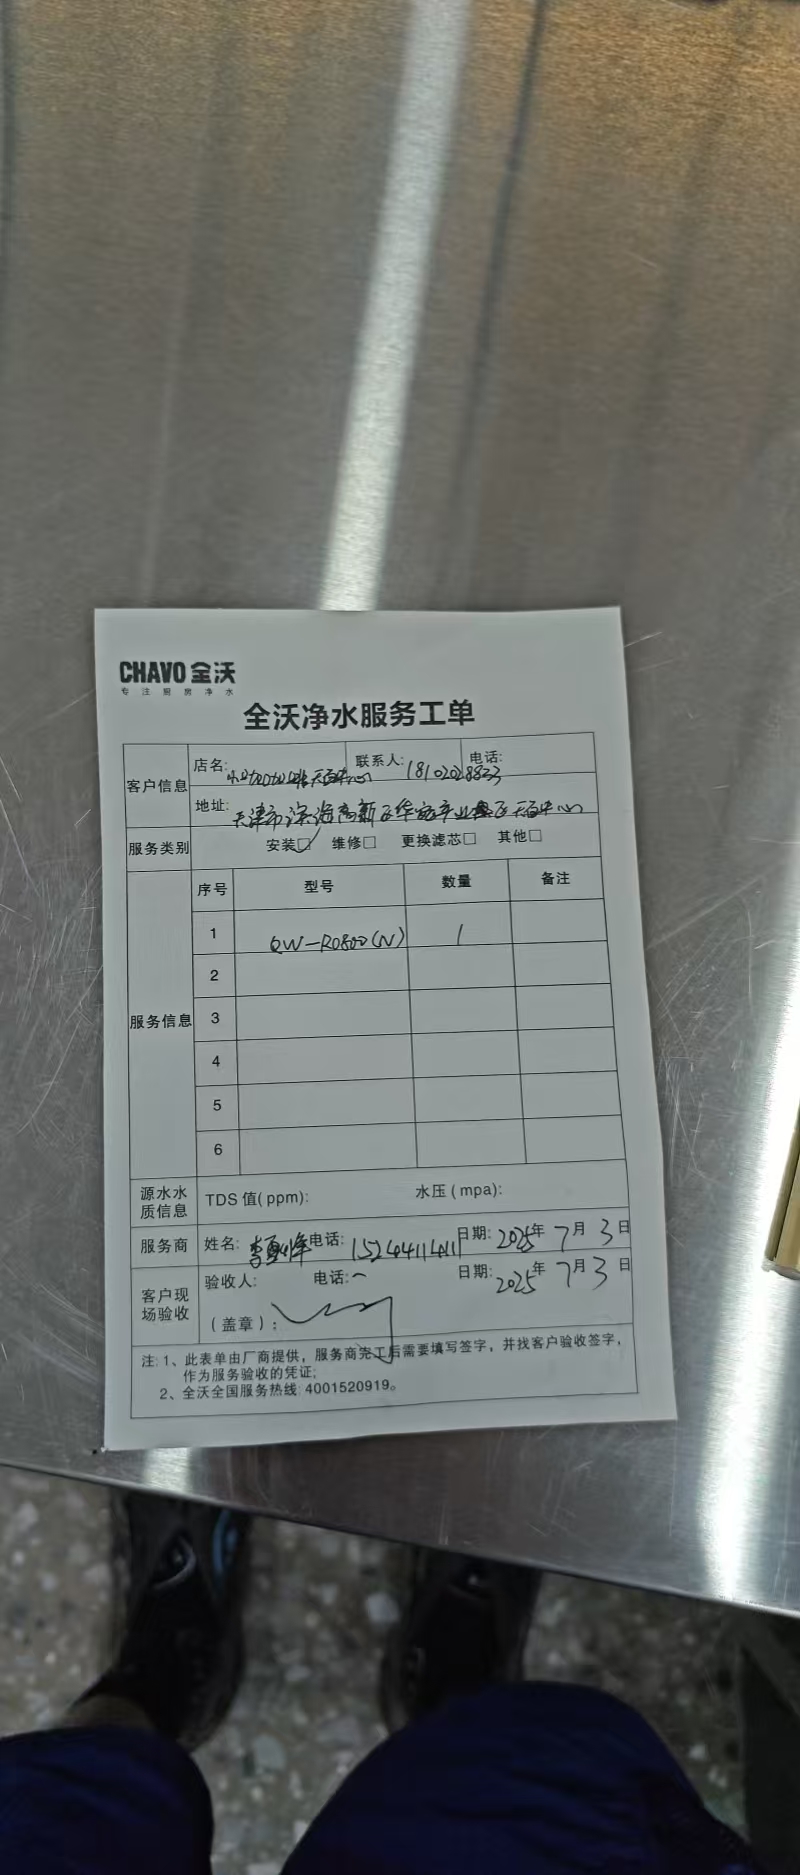 CHAVO 全沃
专注厨房净水
全沃净水服务工单
客户信息
店名: 联系人: 电话:
地址: 天津市滨海高新区华苑产业园区 中心
服务类别 安装☑ 维修□ 更换滤芯□ 其他□
服务信息
序号 型号 数量 备注
1 QW-RO800(N) 1
2
3
4
5
6
源水水质信息 TDS 值(ppm): 水压(mpa):
服务商 姓名: 电话: 日期: 2025年 7月 3日
客户现场验收
验收人: 电话: 日期: 2025年 7月 3日
(盖章):
注: 1、此表单由厂商提供，服务商完工后需要填写签字，并找客户验收签字，
作为服务验收的凭证;
2、全沃全国服务热线: 4001520919。